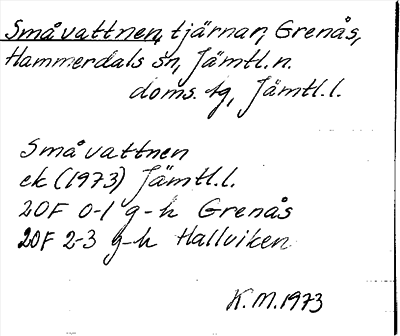 Småvattnen, tjärnar, Grenås,
Hammerdals sn, Jämtl. n.
doms. tg, Jämtl. l.
Småvattnen
ek (1973) Jämtl. l.
20F 0-1 g-h Grenås
20F 2-3 g-h Hallviken
K.M. 1973